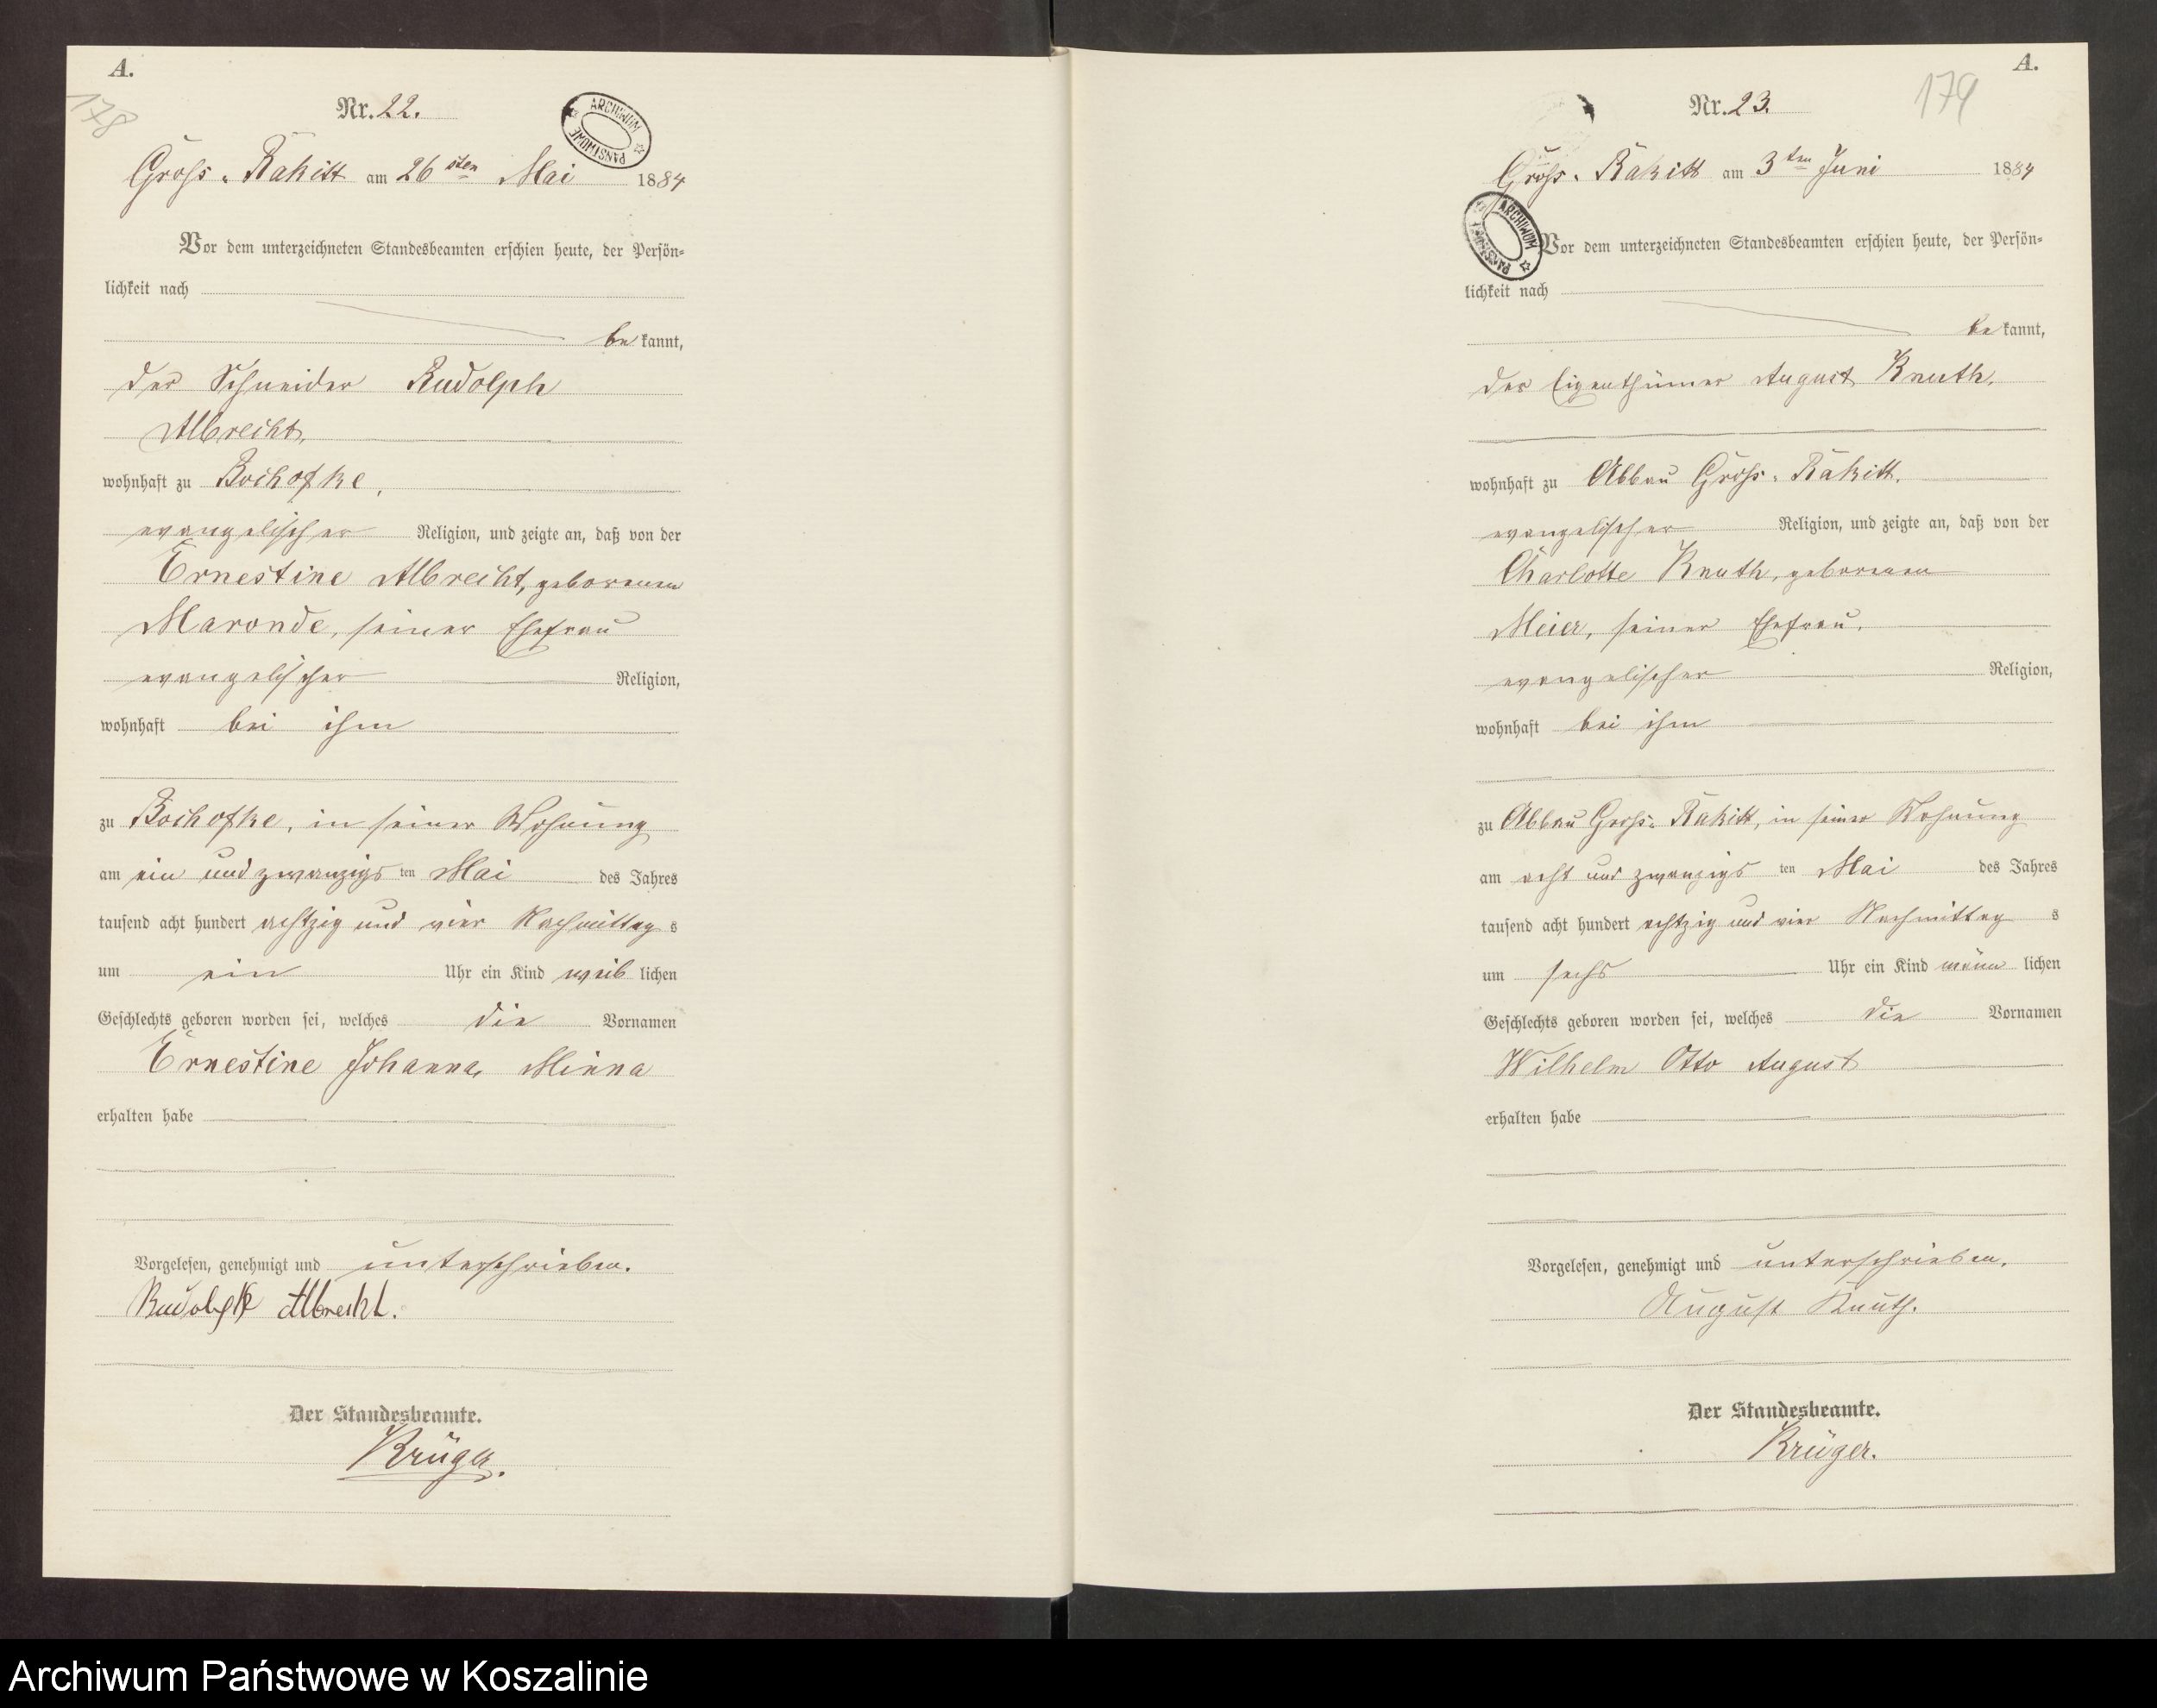 A.
178
Nr. 22.
ARCHIWUM PAŃSTWOWE
Gross-Rakitt am 26sten Mai 1884
Vor dem unterzeichneten Standesbeamten erschien heute, der Persön-
lichkeit nach
bekannt,
der Schneider Rudolph
Albrecht,
wohnhaft zu Bochofke,
evangelischer Religion, und zeigte an, daß von der
Ernestine Albrecht, geborenen
Maronde, seiner Ehefrau
evangelischer Religion,
wohnhaft bei ihm
zu Bochofke, in seiner Wohnung
am ein und zwanzigs ten Mai des Jahres
tausend acht hundert achtzig und vier Nachmittags
um ein Uhr ein Kind weiblichen
Geschlechts geboren worden sei, welches die Vornamen
Ernestine Johanna Minna
erhalten habe
Vorgelesen, genehmigt und unterschrieben.
Rudolph Albrecht.
Der Standesbeamte.
Krüger.
A.
179
Nr. 23.
Gross-Rakitt am 3ten Juni 1884
ARCHIWUM PAŃSTWOWE
Vor dem unterzeichneten Standesbeamten erschien heute, der Persön-
lichkeit nach
bekannt,
der Eigenthümer August Knuth,
wohnhaft zu Abbau Gross-Rakitt,
evangelischer Religion, und zeigte an, daß von der
Charlotte Knuth, geborenen
Meier, seiner Ehefrau,
evangelischer Religion,
wohnhaft bei ihm
zu Abbau Gross-Rakitt, in seiner Wohnung
am acht und zwanzigs ten Mai des Jahres
tausend acht hundert achtzig und vier Nachmittags
um sechs Uhr ein Kind männlichen
Geschlechts geboren worden sei, welches die Vornamen
Wilhelm Otto August
erhalten habe
Vorgelesen, genehmigt und unterschrieben.
August Knuth.
Der Standesbeamte.
Krüger.
Archiwum Państwowe w Koszalinie